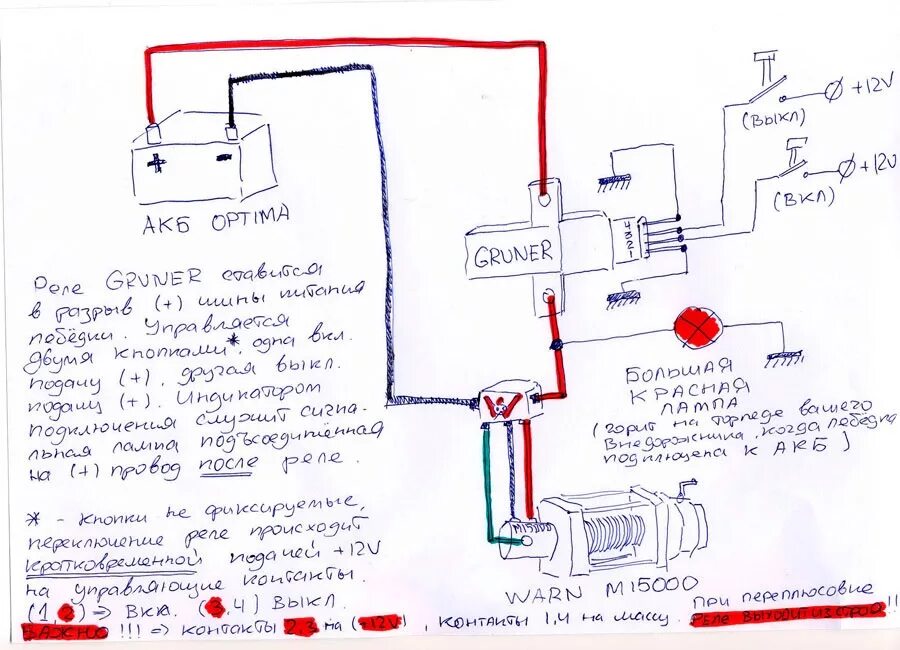 +12V
(ВЫКЛ)
+12V
(ВКЛ)
+ -
АКБ OPTIMA
4
3
2
1
GRUNER
Реле GRUNER ставится
в разрыв (+) шины питания
лебёдки. Управляется
двумя кнопками*, одна вкл.
подачу (+), другая выкл.
подачу (+). Индикатором
подключения служит сигна-
льная лампа подъсоединённая
на (+) провод после реле.
БОЛЬШАЯ
КРАСНАЯ
ЛАМПА
(горит на торпеде вашего
Внедорожника, когда лебёдка
подключена к АКБ)
W
M15000
WARN M15000
* - Кнопки не фиксируемые,
переключение реле происходит
кратковременной подачей +12V
на управляющие контакты.
(1,2) => ВКЛ. (3,4) ВЫКЛ.
ВАЖНО!!! => контакты 2,3 на (+12V), контакты 1,4 на массу. При переплюсовке
реле выходит из строя!!